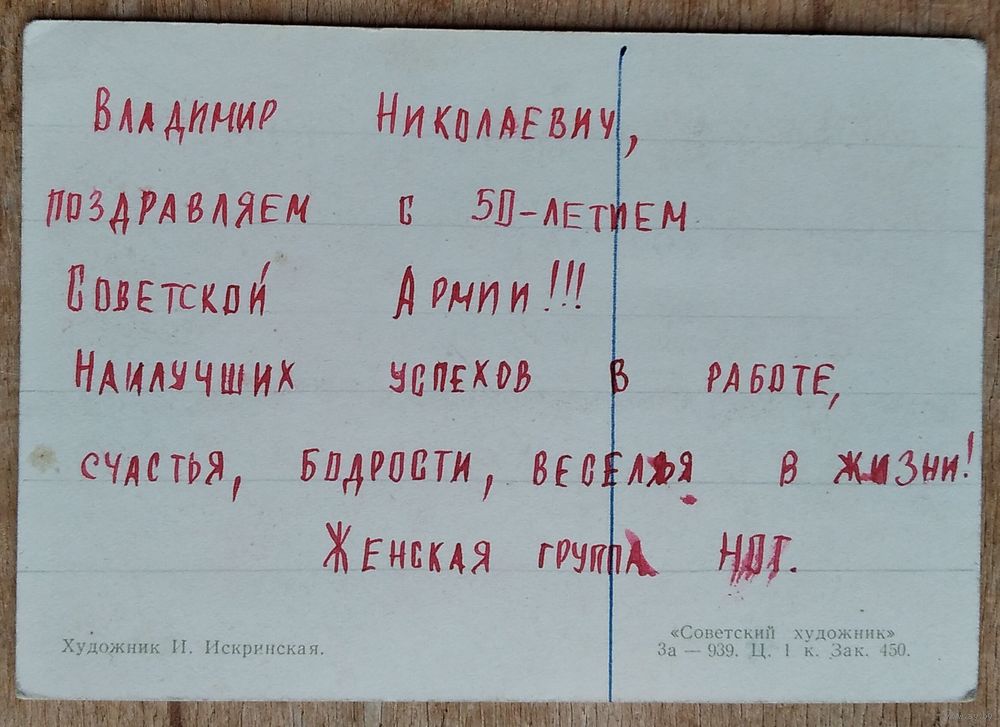 Владимир Николаевич,
поздравляем с 50-летием
Советской Армии!!!
Наилучших успехов в работе,
счастья, бодрости, веселья в жизни!
Женская группа НОТ.
Художник И. Искринская.
«Советский художник»
За — 939. Ц. 1 к. Зак. 450.